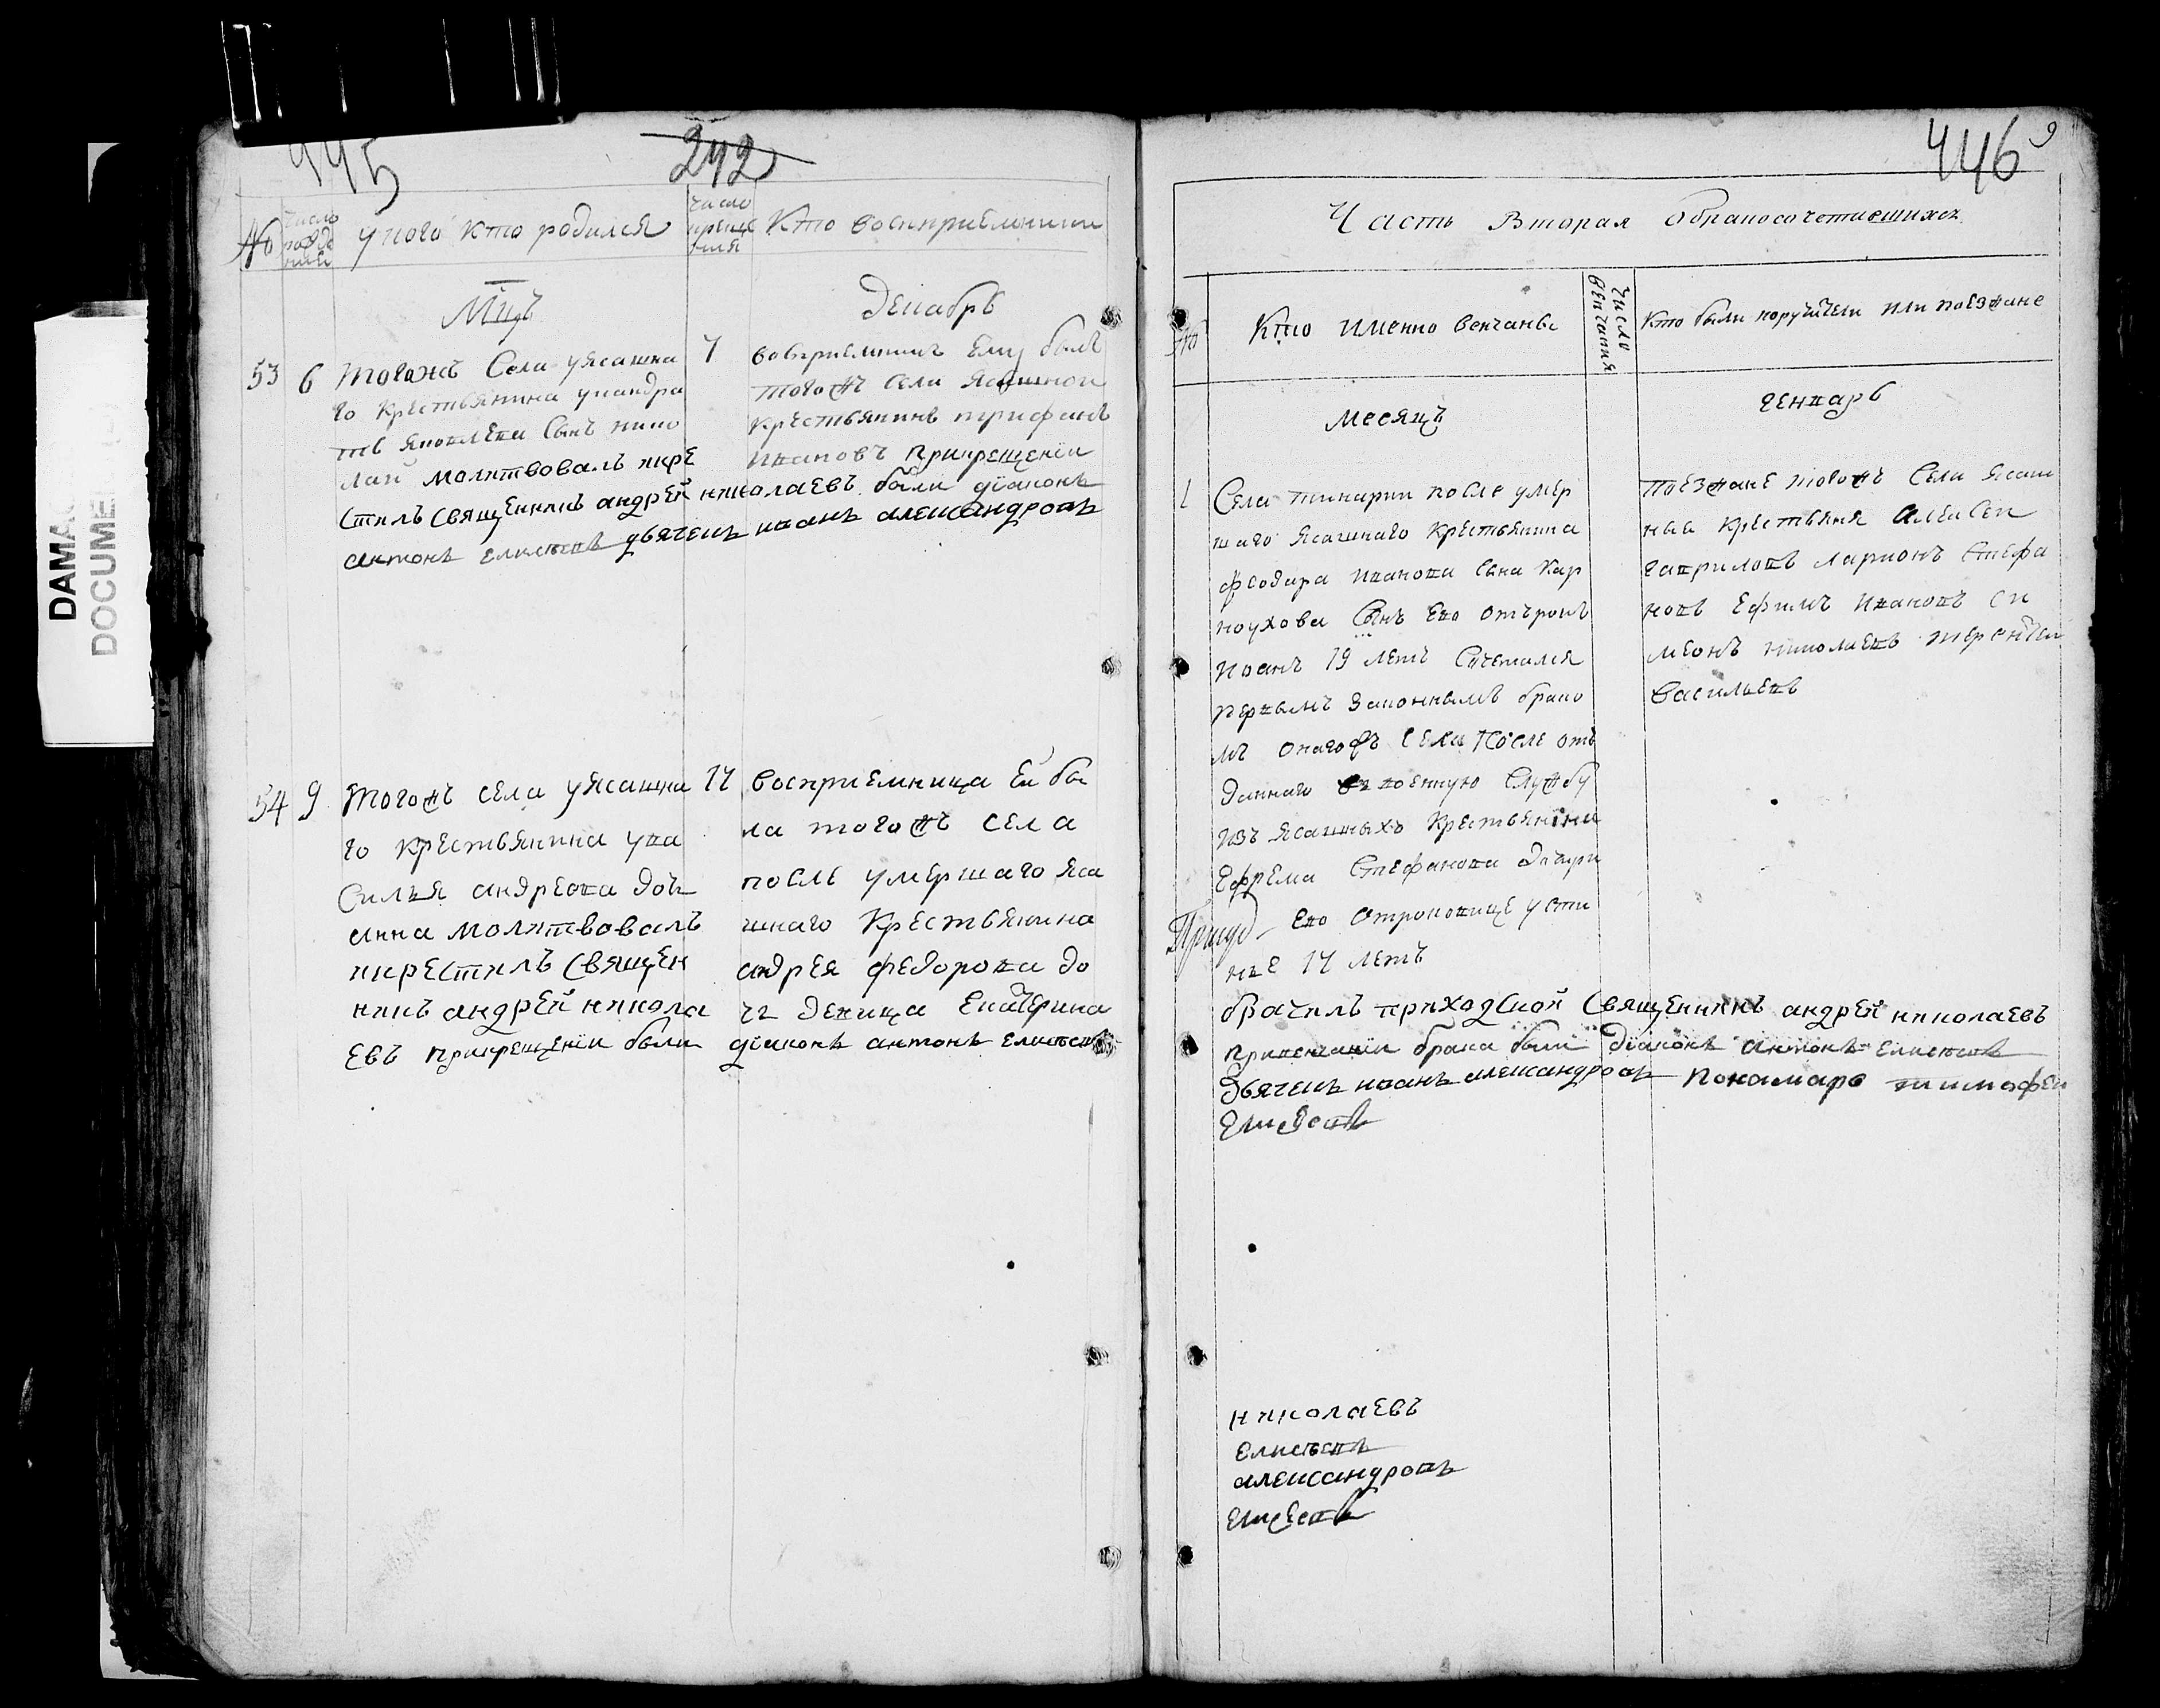 445
242
№ Число рожде нией
У ково кто родился
Число креще ния
Кто восприемники
Мцъ
Декабрь
53 6 тогожъ Села уясашна
го крестьянина укандра
та яковлева Сынъ нико
лай молитвовалъ икре
стилъ священникъ андрей николаевъ были діаконъ
антонъ елисеевъ дьячекъ иванъ александровъ
7 восприемникъ Ему былъ
тогожъ Села Ясашной
крестьянинъ трифанъ
ивановъ прикрещеніи
54 9 тогожъ села уясашна
го крестьянина ува
силья андреева дочь
анна молитвовалъ
икрестилъ Священ
никъ андрей никола
евъ прикрещеніи были
14 восприемница Ей бы
ла тогожъ села
после умершаго яса
шнаго крестьянина
андрея федорова до
чь девица Екатерина
діаконъ антонъ елисеевъ
DAMA
DOCUME
446
9
Часть Вторая обракосочетавшихся
№
Кто именно венчаны
Число венчания
Кто были поручители или поезжане
Месяцъ
генварь
1 Села после умер
шаго Ясашнаго крестьянина
феодора иванова Сына Кар
ноухова Сынъ Ево отърокъ
иванъ 19 летъ Сочетался
первымъ законнымъ брако
мъ онагожъ Села после отъ
даннаго въ военную Службу
изъ ясашныхъ крестьянина
Ефрема Степанова дочери
Ево отроковице усти
нье 17 летъ
поезжане тогожъ Села ясаш
ныя крестьяня алексеи
гавриловъ ларионъ Стефа
новъ Ефимъ ивановъ Си
меонъ николаевъ терентеи
васильевъ
обрачилъ приходской Священникъ андрей николаевъ
привенчаніи брака были діаконъ антонъ елисеевъ
дьячекъ иванъ александровъ пономарь тимофеи
Елисеевъ
николаевъ
елисеевъ
александровъ
елисеевъ